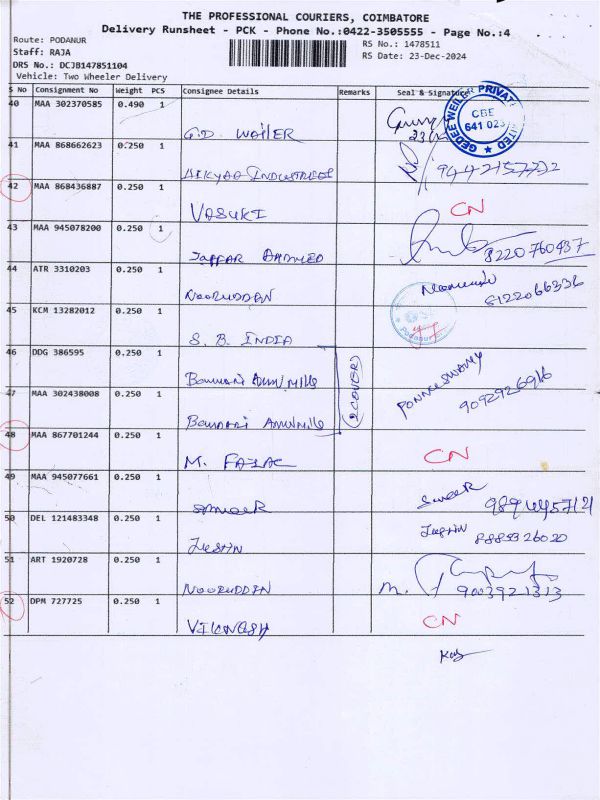 THE PROFESSIONAL COURIERS, COIMBATORE
Delivery Runsheet - PCK - Phone No.:0422-3505555 - Page No.:4
Route: PODANUR
Staff: RAJA
RS No.: 1478511
DRS No.: DCJB147851104
RS Date: 23-Dec-2024
Vehicle: Two Wheeler Delivery
S No Consignment No Weight PCS Consignee Details Remarks Seal & Signature
40 MAA 302370585 0.490 1
G.D. WAILER
GEDEE WEILER PRIVATE LIMITED
CBE
641 023
41 MAA 868662623 0.250 1
INDUSTRIES
42 MAA 868436887 0.250 1
VASUKI CN
43 MAA 945078200 0.250 1
JAFFAR AHMED 8220760437
44 ATR 3310203 0.250 1
NOORUDDAN 8122066336
45 KCM 13282012 0.250 1
S. B. INDIA
Podanur
46 DDG 386595 0.250 1
Bannari Amm Mills (2 COVER) PONNUSWAMY
9092926916
47 MAA 302438008 0.250 1
Bannari Amm Mills
48 MAA 867701244 0.250 1
M. FAZAL CN
49 MAA 945077661 0.250 1
SAMEER Sameer
50 DEL 121483348 0.250 1
Justin Justin
51 ART 1920728 0.250 1
NOORUDDIN M. 9003921313
52 DPM 727725 0.250 1
VIKNESH CN